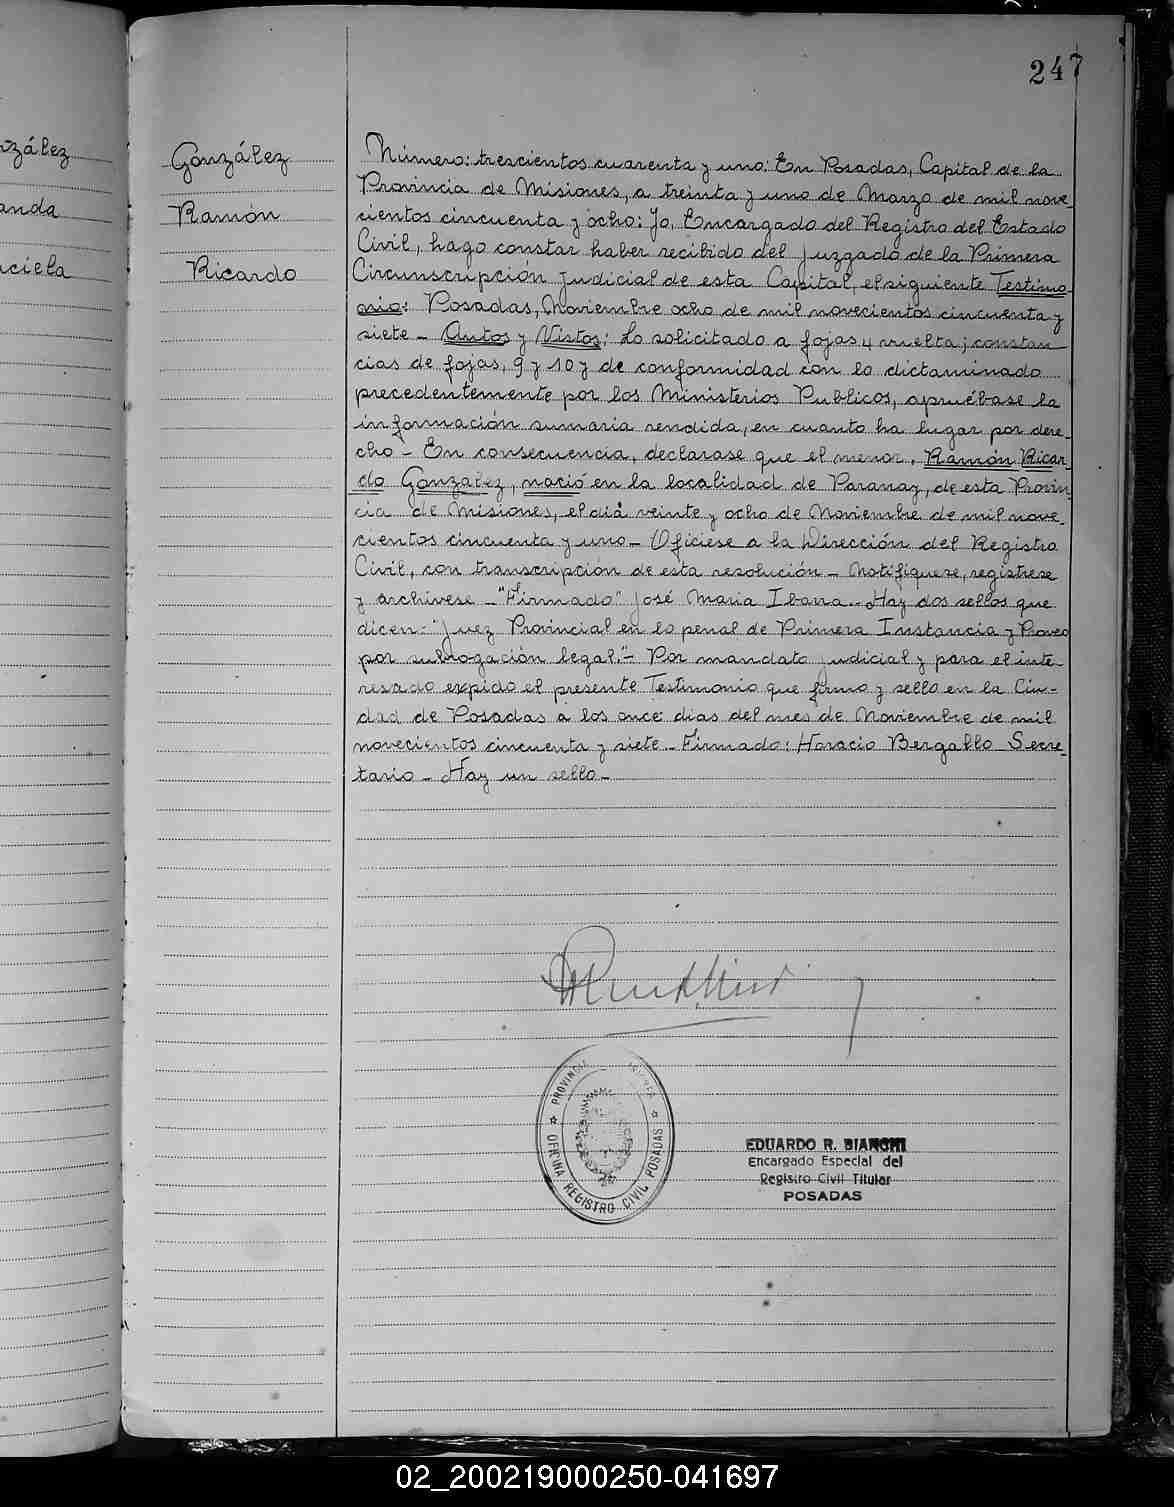 247
nzález
anda
aciela
González
Ramón
Ricardo
Número: trescientos cuarenta y uno: En Posadas, Capital de la
Provincia de Misiones, a treinta y uno de Marzo de mil nove-
cientos cincuenta y ocho: Yo, Encargado del Registro del Estado
Civil, hago constar haber recibido del Juzgado de la Primera
Circunscripción Judicial de esta Capital, el siguiente Testimo-
nio: Posadas, Noviembre ocho de mil novecientos cincuenta y
siete - Autos y Vistos: Lo solicitado a fojas 4 vuelta; constan
cias de fojas, 9 y 10 y de conformidad con lo dictaminado
precedentemente por los Ministerios Publicos, apruébase la
información sumaria rendida, en cuanto ha lugar por dere-
cho - En consecuencia, declarase que el menor, Ramón Ricar-
do González, nació en la localidad de Paranay, de esta Provin-
cia de Misiones, el día veinte y ocho de Noviembre de mil nove-
cientos cincuenta y uno - Ofíciese a la Dirección del Registro
Civil, con transcripción de esta resolución - Notifíquese, regístrese
y archívese - "Firmado" José Maria Ibarra - Hay dos sellos que
dicen: "Juez Provincial en lo penal de Primera Instancia y Proveo
por subrogación legal." - Por mandato judicial y para el inte-
resado expido el presente Testimonio que firmo y sello en la Ciu-
dad de Posadas a los once días del mes de Noviembre de mil
novecientos cincuenta y siete - Firmado: Horacio Bergallo Secre-
tario - Hay un sello -
PROVINCIA
OFICINA REGISTRO CIVIL POSADAS
EDUARDO R. BIANCHI
Encargado Especial del
Registro Civil Titular
POSADAS
02_200219000250-041697